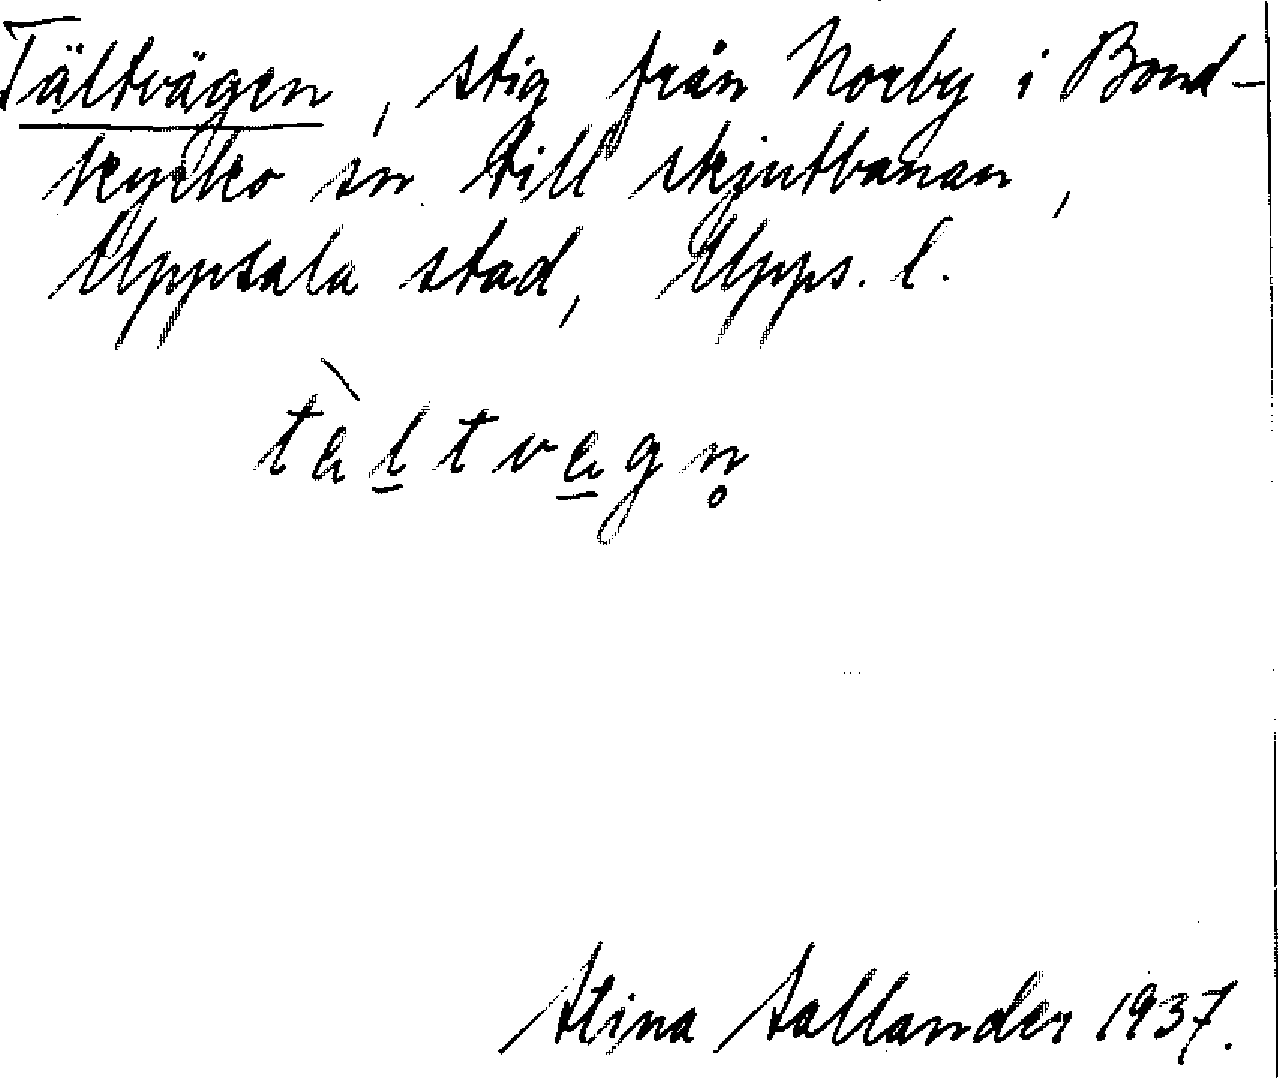 Tältvägen, stig från Norby i Bond-
kyrko sn till skjutbanan,
Uppsala stad, Upps. l.
tàl̲tva̲gn̥
Stina Sallander 1937.